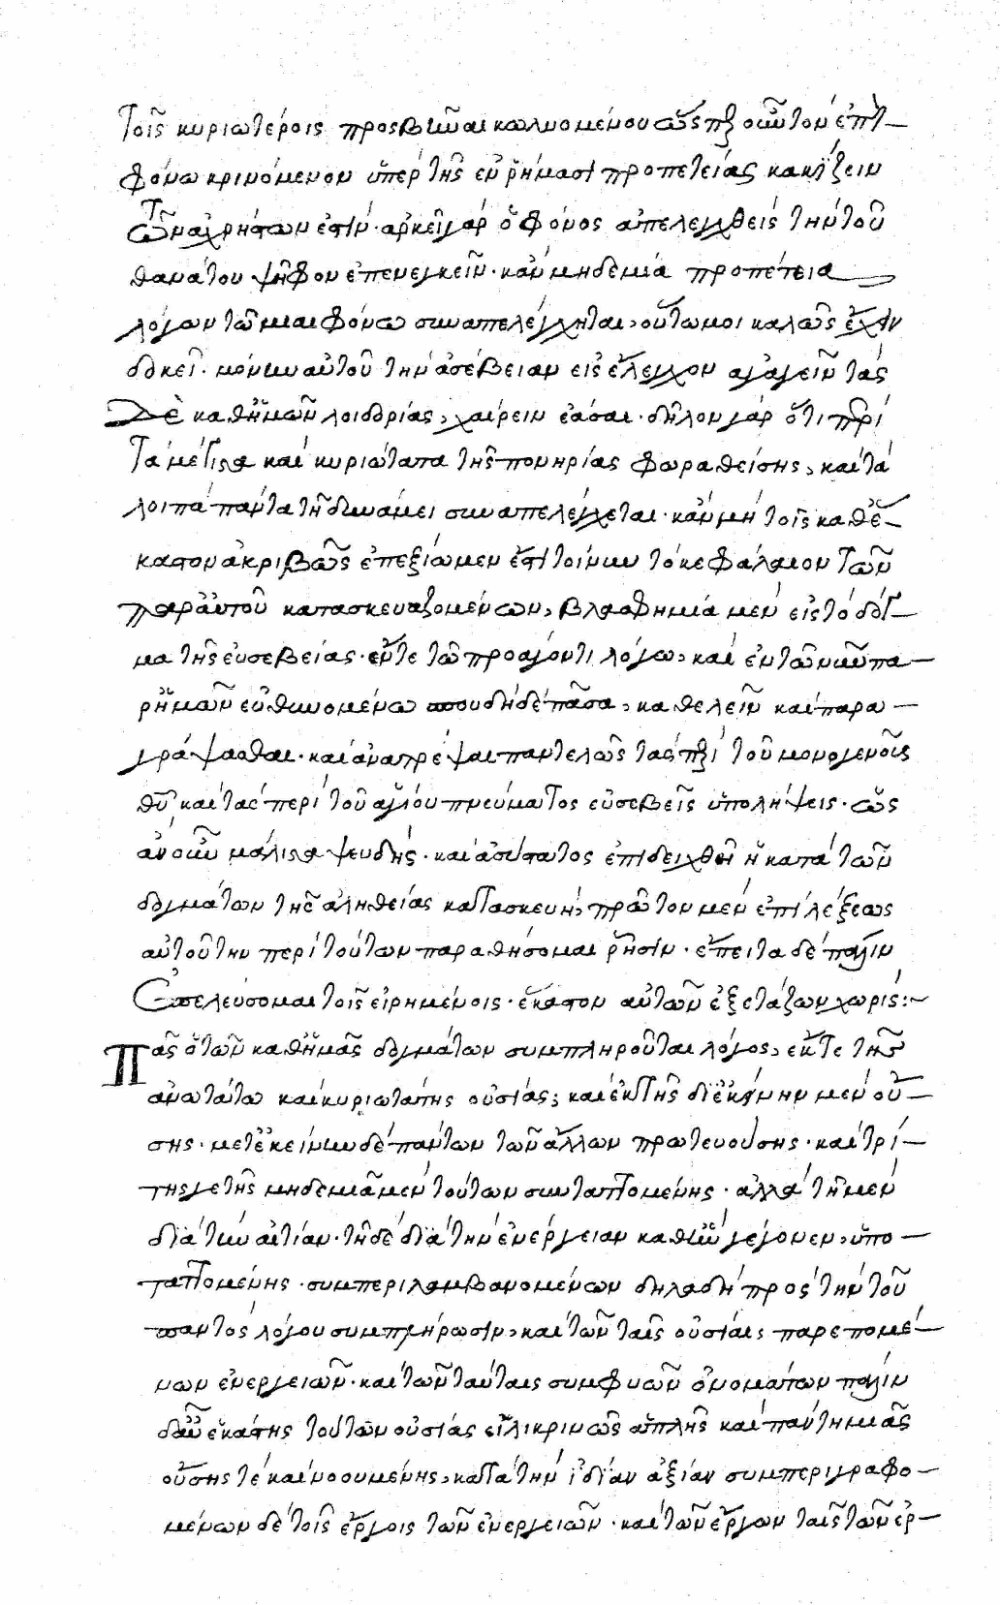 τοῖς κυριωτέροις προσβῶναι κωλυομένου ὥσπερ οὖν τὸν ἐπὶ
φόνω κρινόμενον ὑπὲρ τῆς ἐν ῥήμασι προπετείας κακίζειν
τῶν ἀχρήστων ἐστίν· ἀρκεῖ γὰρ ὁ φόνος ἀπελεγχθεὶς τὴν τοῦ
θανάτου ψῆφον ἐπενεγκεῖν· κἂν μηδεμία προπέτεια
λόγων τῶ μιαιφόνω συναπελέγχηται, οὕτω μοι καλῶς ἔχειν
δοκεῖ· μόνην αὐτοῦ τὴν ἀσέβειαν εἰς ἔλεγχον ἀγαγεῖν τὰς
δὲ καθ' ἡμῶν λοιδορίας, χαίρειν ἐᾶσαι· δῆλον γὰρ ὅτι περὶ
τὰ μέγιστα καὶ κυριώτατα τῆς πονηρίας φωραθείσης, καὶ τὰ
λοιπὰ πάντα τῇ δυνάμει συναπελέγχεται· κἂν μὴ τοῖς καθέ-
καστον ἀκριβῶς ἐπεξίωμεν ἔστι τοίνυν τὸ κεφάλαιον τῶν
παρ' αὐτοῦ κατασκευαζομένων, βλασφημία μὲν εἰς τὸ δόγ-
μα τῆς εὐσεβείας· ἔν τε τῶ προάγοντι λόγω, καὶ ἐν τῶ νῦν πα-
ρ' ἡμῶν εὐθυνομένω σπουδὴ δὲ πᾶσα, καθελεῖν καὶ παρα-
γράψασθαι· καὶ ἀνατρέψαι παντελῶς τὰς περὶ τοῦ μονογενοῦς
θῦ καὶ τὰς περὶ τοῦ ἁγίου πνεύματος εὐσεβεῖς ὑπολήψεις· ὡς
ἂν οὖν μάλιστα ψευδὴς· καὶ ἀσύστατος ἐπιδειχθῇ ἡ κατὰ τῶν
δογμάτων τῆς ἀληθείας κατασκευή, πρῶτον μὲν ἐπὶ λέξεως
αὐτοῦ τὴν περὶ τούτων παραθήσομαι ῥῆσιν· ἔπειτα δὲ πάλιν
ἐπελεύσομαι τοῖς εἰρημένοις· ἕκαστον αὐτῶν ἐξετάζων χωρίς:~
Πᾶς ὁ τῶν καθ' ἡμᾶς δογμάτων συμπληροῦται λόγος, ἔκ τε τῆς
ἀνωτάτω καὶ κυριωτάτης οὐσίας, καὶ ἐκ τῆς δι' ἐκείνην μὲν οὔ-
σης· μετ' ἐκείνην δὲ πάντων τῶν ἄλλων πρωτευούσης· καὶ τρί-
της γε τῆς μηδεμιᾷ μὲν τούτων συνταττομένης· ἀλλὰ τῇ μὲν
διὰ τὴν αἰτίαν· τῇ δὲ διὰ τὴν ἐνέργειαν καθ' ἣν γέγονεν, ὑπο-
ταττομένης· συμπεριλαμβανομένων δηλαδὴ πρὸς τὴν τοῦ
παντὸς λόγου συμπλήρωσιν, καὶ τῶν ταῖς οὐσίαις παρεπομέ-
νων ἐνεργειῶν· καὶ τῶν ταύταις συμφυῶν ὀνομάτων πάλιν
δ' αὖ ἑκάστης τούτων οὐσίας εἰλικρινῶς ἁπλῆς καὶ πάντη μιᾶς
οὔσης τὲ καὶ νοουμένης, κατὰ τὴν ἰδίαν ἀξίαν συμπεριγραφο-
μένων δὲ τοῖς ἔργοις τῶν ἐνεργειῶν· καὶ τῶν ἔργων ταῖς τῶν ἐρ-